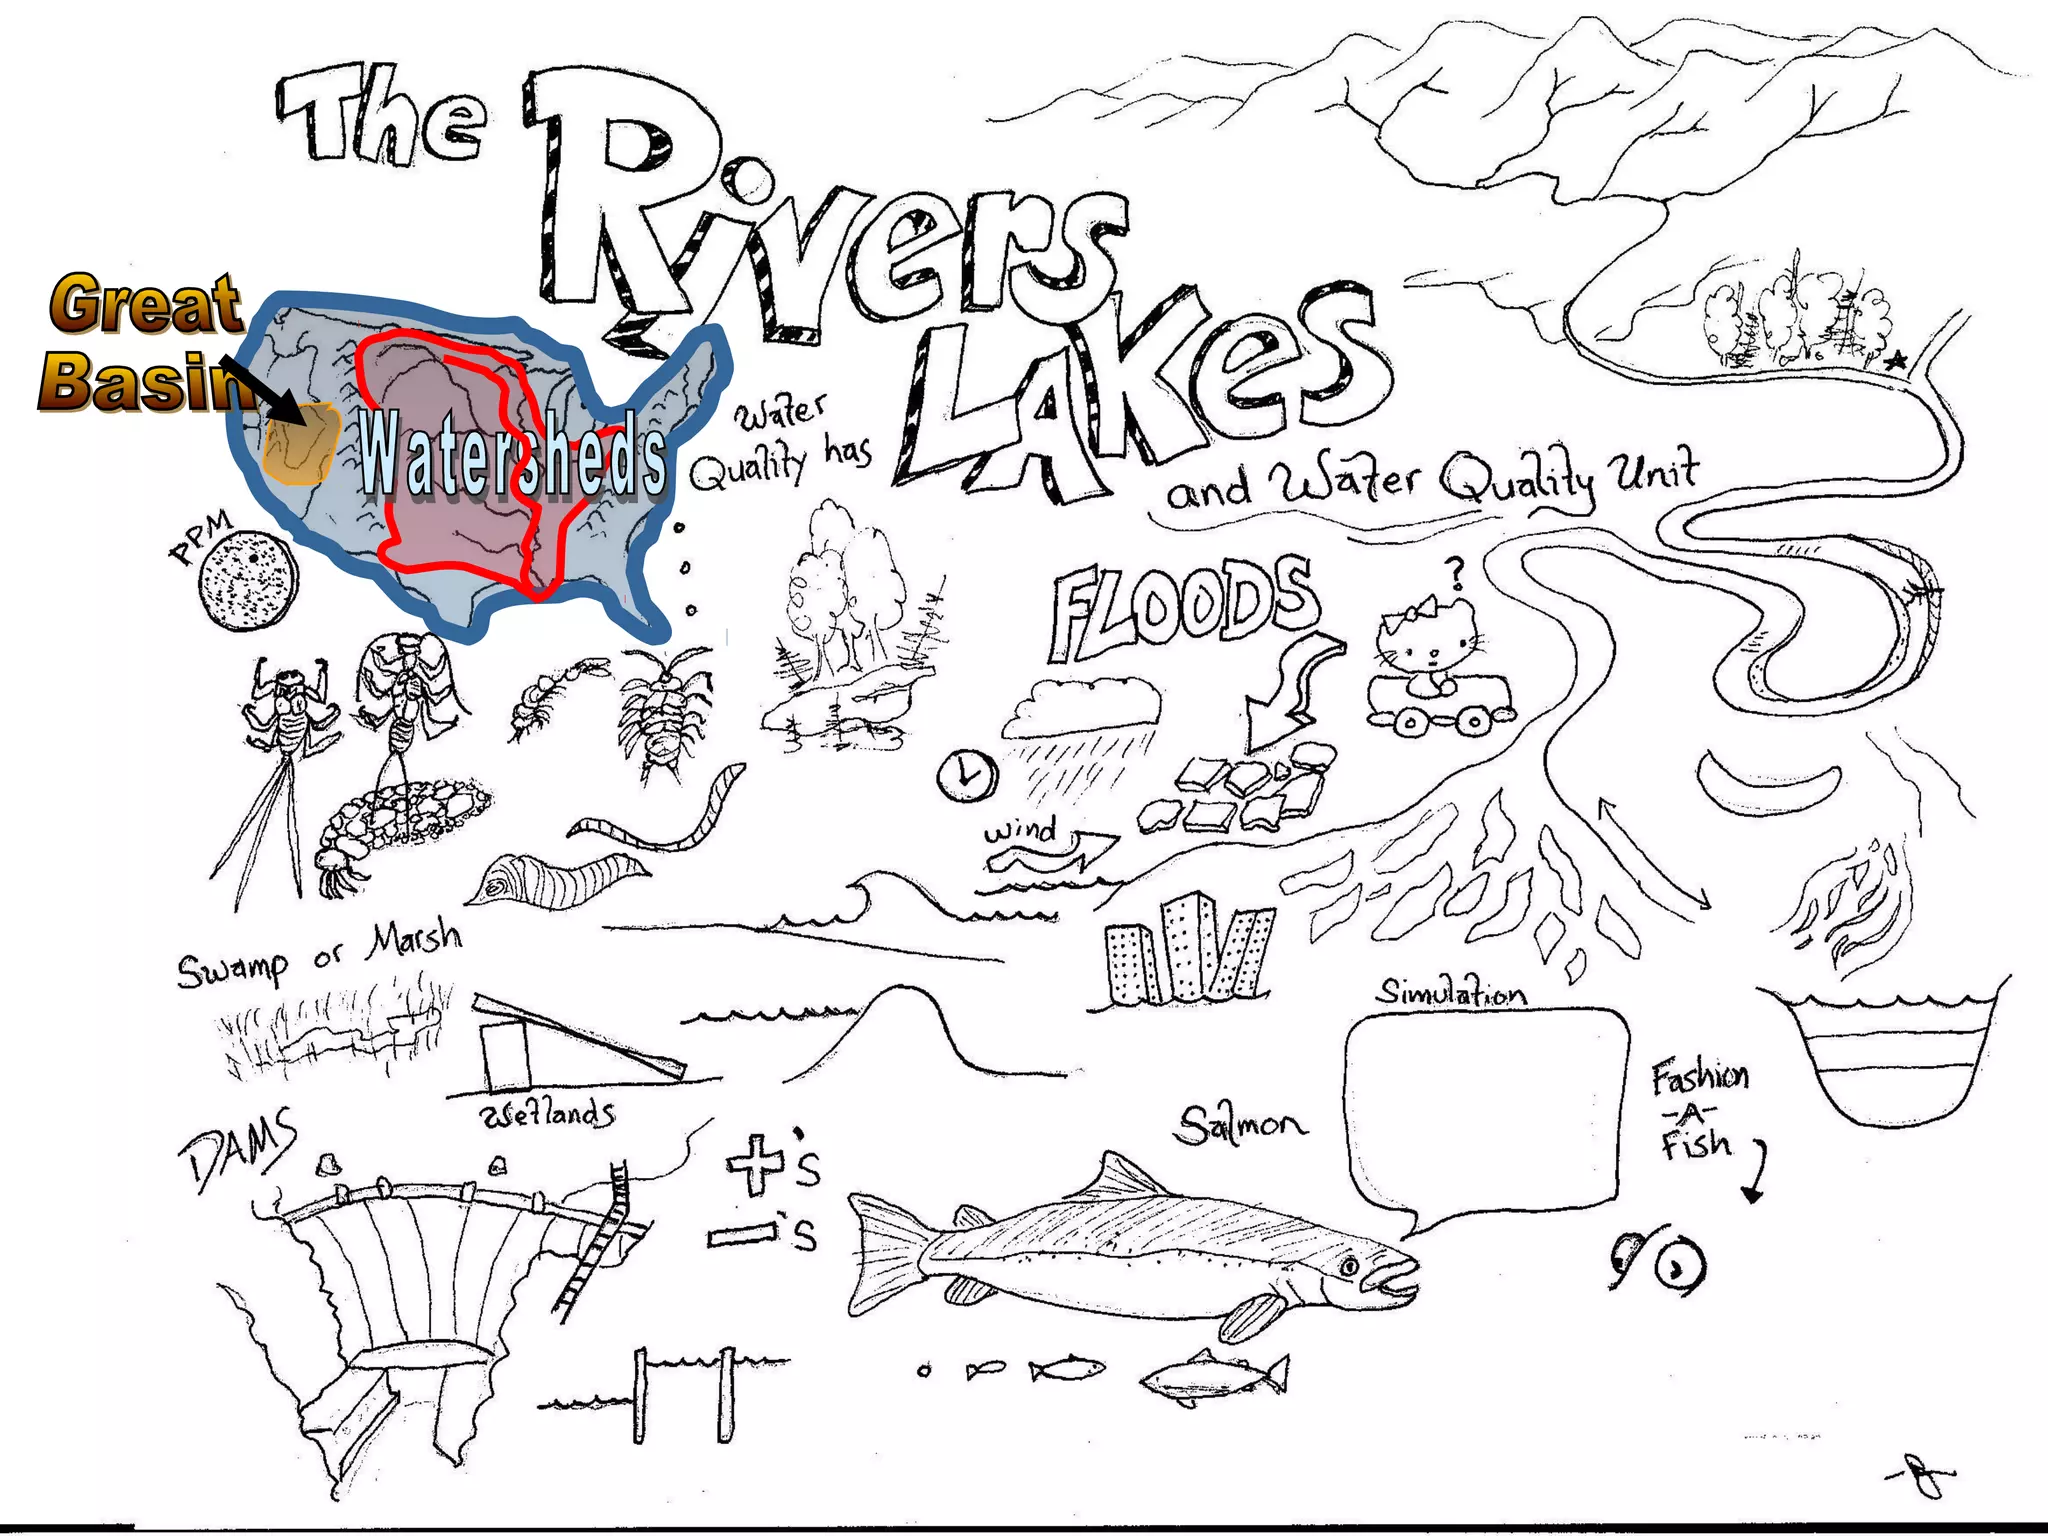 The Rivers
Lakes
and Water Quality Unit
Great
Basin
Watersheds
Water
Quality has
PPM
FLOODS
?
wind
Swamp or Marsh
Wetlands
Simulation
Fashion
-A-
Fish
Salmon
DAMS
+'s
-'s